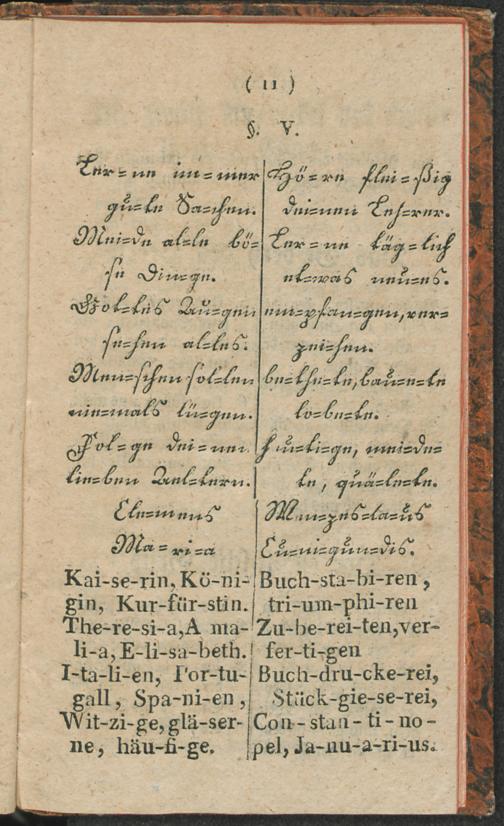 ( 11 )
§. V.
Ler=ne im=mer
gu=te Sa=chen.
Mei=de al=le bö=
se Din=ge.
Got=tes Au=gen
se=hen al=les.
Men=schen sol=len
nie=mals lü=gen.
Fol=ge dei=nen
lie=ben Ael=tern.
Cle=mens
Ma=ri=a
Kai-se-rin, Kö-ni-
gin, Kur-für-stin.
The-re-si-a, A ma-
li-a, E-li-sa-beth.
I-ta-li-en, Por-tu-
gall, Spa-ni-en,
Wit-zi-ge, glä-ser-
ne, häu-fi-ge.
Hö=re flei=ßig
dei=nen Leh=rer.
Ler=ne täg=lich
et=was neu=es.
em=pfan=gen, ver=
zei=hen.
be=the=te, bau=e=te
lo=be=te.
hu=ti=ge, mei=de=
te, quä=le=te.
Wen=zes=la=us
Cu=ni=gun=dis.
Buch-sta-bi-ren,
tri-um-phi-ren
Zu-be-rei-ten, ver-
fer-ti-gen
Buch-dru-cke-rei,
Stück-gie-se-rei,
Con-stan-ti-no-
pel, Ja-nu-a-ri-us.